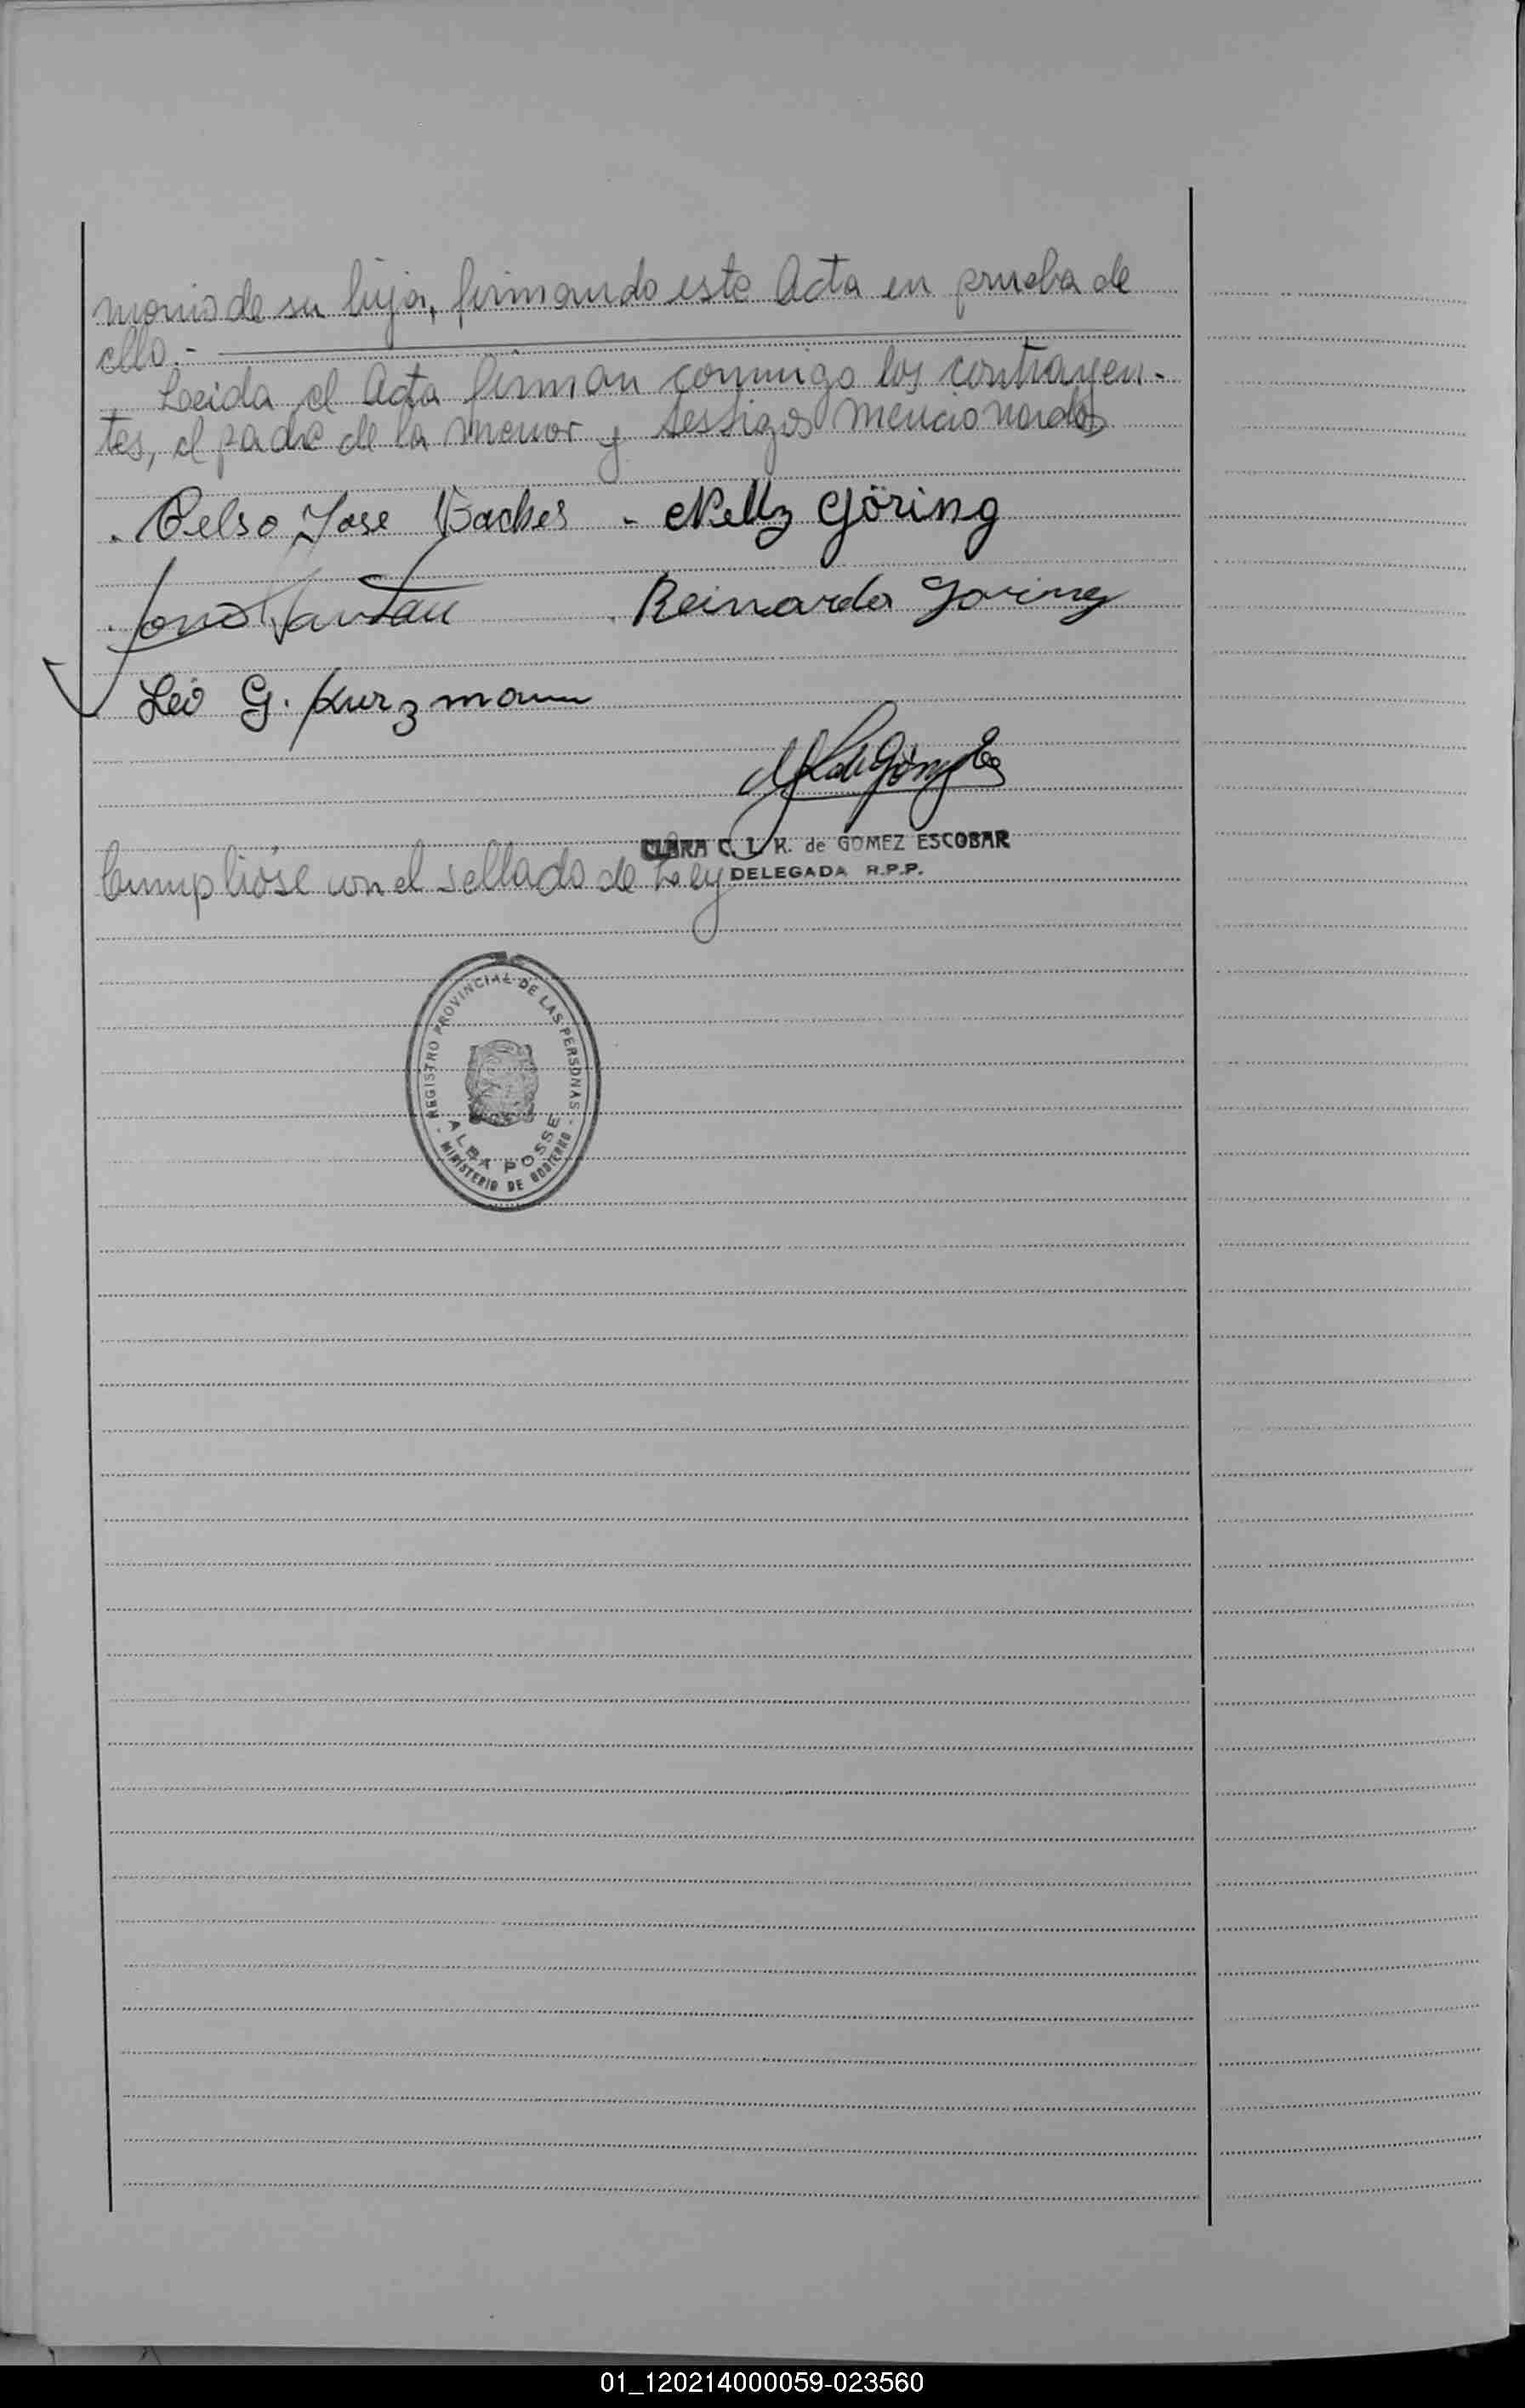 monio de su hija, firmando este Acta en prueba de
ello.-
Leida el Acta firman conmigo los contrayen-
tes, el padre de la menor y testigos mencionados
Celso Jose Backes - Nelly Göring
Reinardo Goring
Leo G. Kurzmann
CLARA C. L. K. de GOMEZ ESCOBAR
DELEGADA R.P.P.
Cumplióse con el sellado de Ley
REGISTRO PROVINCIAL DE LAS PERSONAS
ALBA POSSE
- MINISTERIO DE GOBIERNO -
01_120214000059-023560